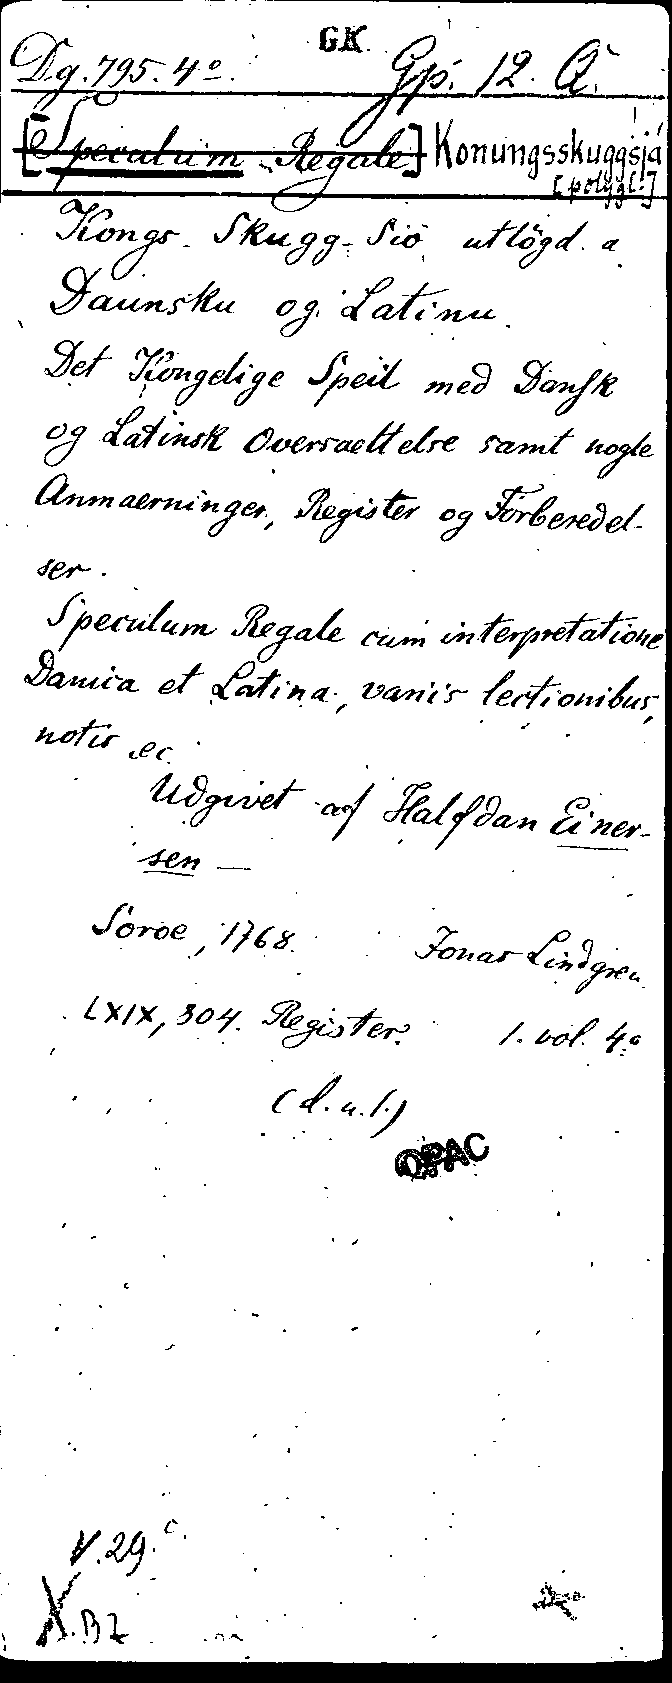 GK
Dg. 795. 4º. Gp. 12. Q.
[Speculum Regale] Konungsskuggsjá
[polygl.]
Kongs-Skugg-Sio utlögd a
Daunsku og Latinu.
Det Kongelige Speil med Dansk
og Latinsk Oversaettelse samt nogle
Anmaerninger, Register og Forberedel-
ser.
Speculum Regale cum interpretatione
Danica et Latina, variis lectionibus,
notis ec.
Udgivet af Halfdan Einer-
sen —
Soroe, 1768. Jonas Lindgren
LXIX, 304. Register. 1. vol. 4º
(d. u. l.)
OPAC
V. 29. c.
X. BZ